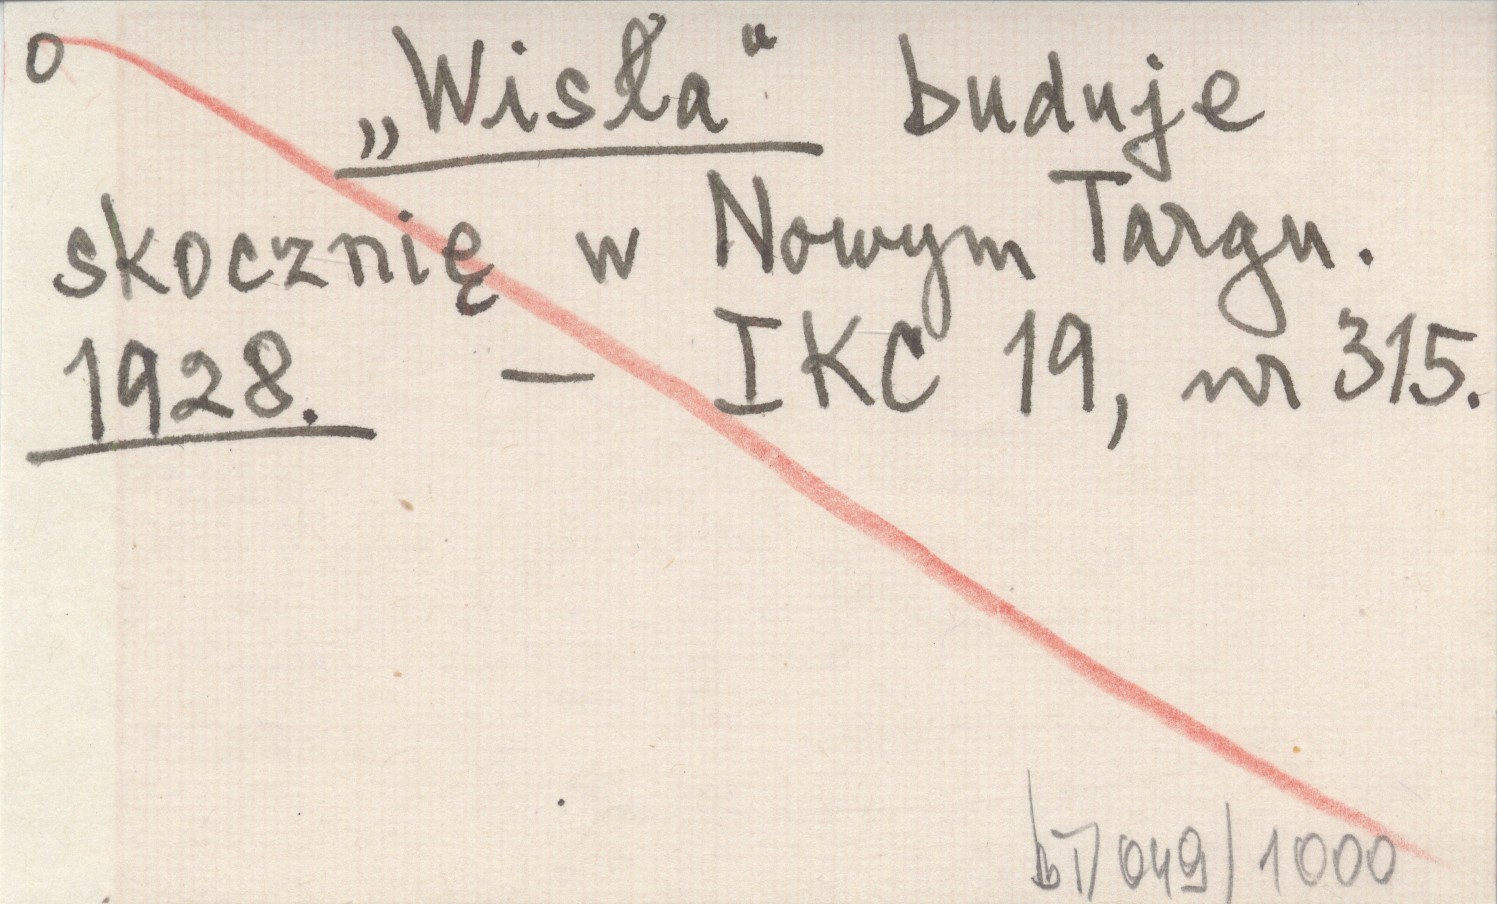 o „Wisła“ buduje
skocznię w Nowym Targu.
1928. — IKC 19, nr 315.
049/1000